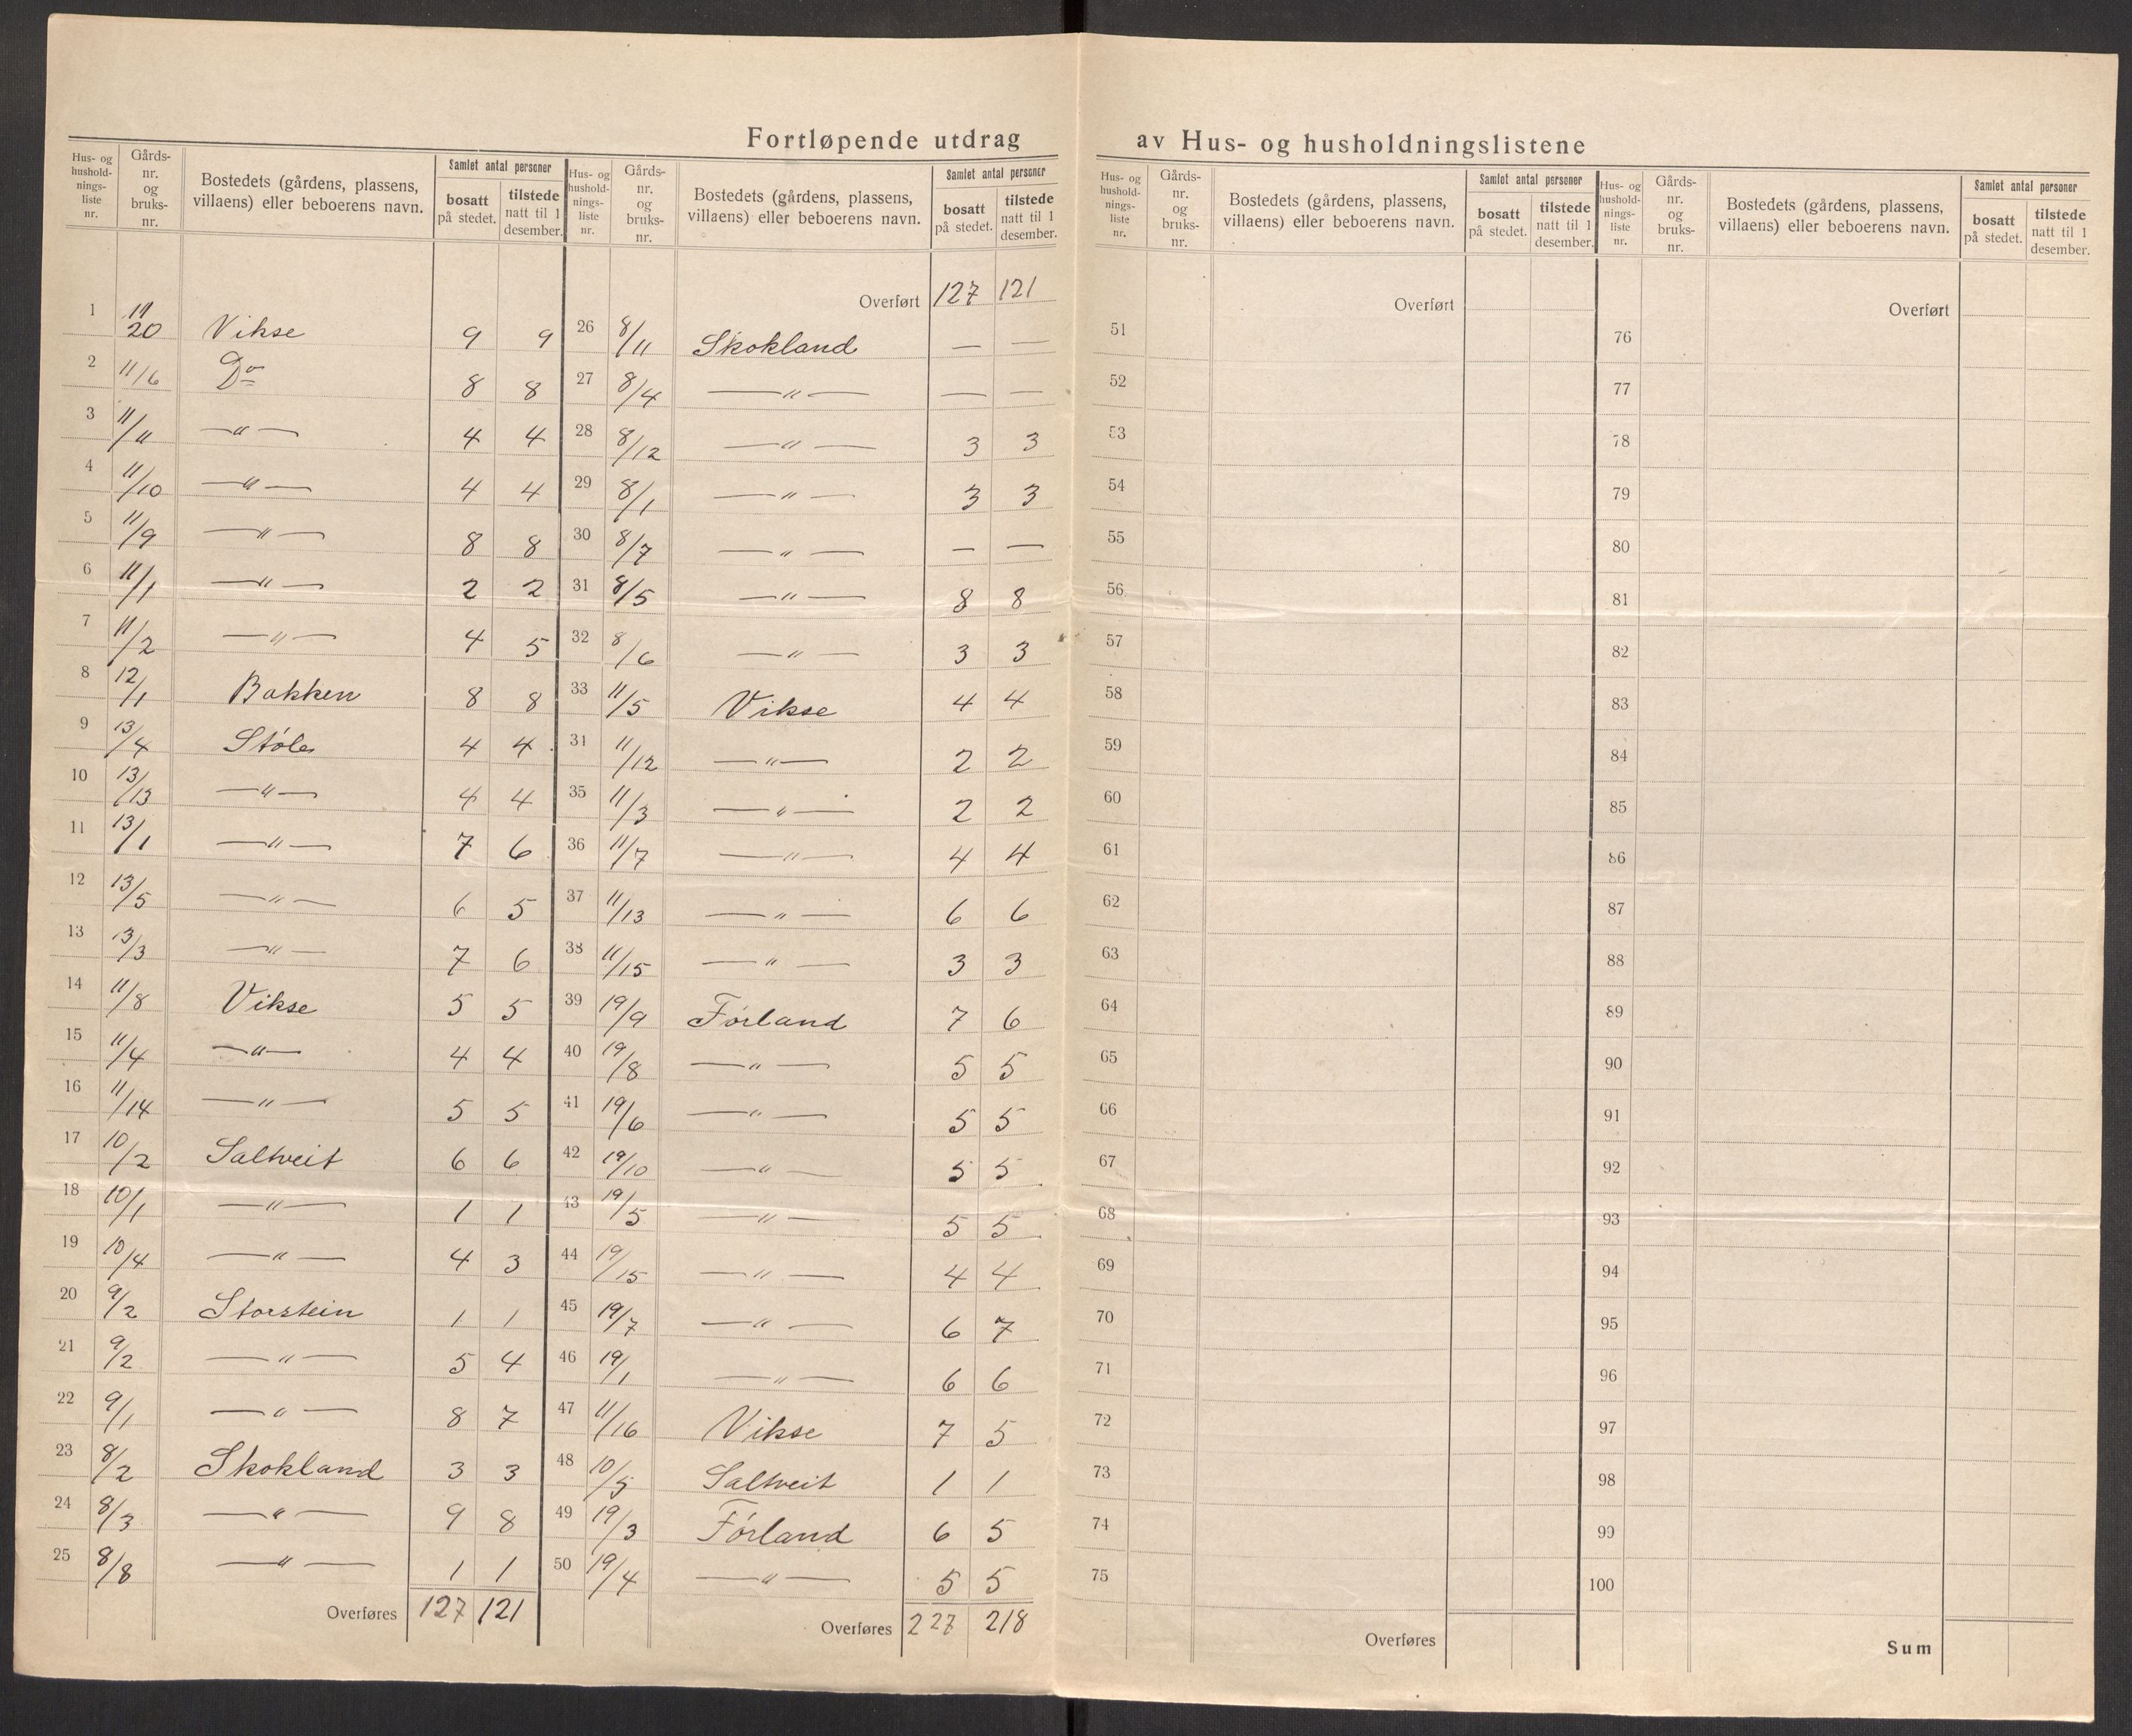 Fortløpende utdrag av Hus- og husholdningslistene
Hus- og hushold- nings- liste nr. | Gårds- nr. og bruks- nr. | Bostedets (gårdens, plassens, villaens) eller beboerens navn. | Samlet antal personer | bosatt på stedet. | tilstede natt til 1 desember.
1 11/20 Vikse 9 9
2 11/6 Do 8 8
3 11/11 —〃— 4 4
4 11/10 —〃— 4 4
5 11/9 —〃— 8 8
6 11/1 —〃— 2 2
7 11/2 —〃— 4 5
8 12/1 Bakken 8 8
9 13/4 Støle 4 4
10 13/13 —〃— 4 4
11 13/1 —〃— 7 6
12 13/5 —〃— 6 5
13 13/3 —〃— 7 6
14 11/8 Vikse 5 5
15 11/4 —〃— 4 4
16 11/14 —〃— 5 5
17 10/2 Saltveit 6 6
18 10/1 —〃— 1 1
19 10/4 —〃— 4 3
20 9/2 Storstein 1 1
21 9/2 —〃— 5 4
22 9/1 —〃— 8 7
23 8/2 Skokland 3 3
24 8/3 —〃— 9 8
25 8/8 —〃— 1 1
Overføres 127 121
Hus- og hushold- nings- liste nr. | Gårds- nr. og bruks- nr. | Bostedets (gårdens, plassens, villaens) eller beboerens navn. | Samlet antal personer | bosatt på stedet. | tilstede natt til 1 desember.
Overført 127 121
26 8/11 Skokland — —
27 8/4 —〃— — —
28 8/12 —〃— 3 3
29 8/1 —〃— 3 3
30 8/7 —〃— — —
31 8/5 —〃— 8 8
32 8/6 —〃— 3 3
33 11/5 Vikse 4 4
34 11/12 —〃— 2 2
35 11/3 —〃— 2 2
36 11/7 —〃— 4 4
37 11/13 —〃— 6 6
38 11/15 —〃— 3 3
39 19/9 Førland 7 6
40 19/8 —〃— 5 5
41 19/6 —〃— 5 5
42 19/10 —〃— 5 5
43 19/5 —〃— 5 5
44 19/15 —〃— 4 4
45 19/7 —〃— 6 7
46 19/1 —〃— 6 6
47 11/16 Vikse 7 5
48 10/5 Saltveit 1 1
49 19/3 Førland 6 5
50 19/4 —〃— 5 5
Overføres 227 218
Hus- og hushold- nings- liste nr. | Gårds- nr. og bruks- nr. | Bostedets (gårdens, plassens, villaens) eller beboerens navn. | Samlet antal personer | bosatt på stedet. | tilstede natt til 1 desember.
Overført
51
52
53
54
55
56
57
58
59
60
61
62
63
64
65
66
67
68
69
70
71
72
73
74
75
Overføres
Hus- og hushold- nings- liste nr. | Gårds- nr. og bruks- nr. | Bostedets (gårdens, plassens, villaens) eller beboerens navn. | Samlet antal personer | bosatt på stedet. | tilstede natt til 1 desember.
Overført
76
77
78
79
80
81
82
83
84
85
86
87
88
89
90
91
92
93
94
95
96
97
98
99
100
Sum